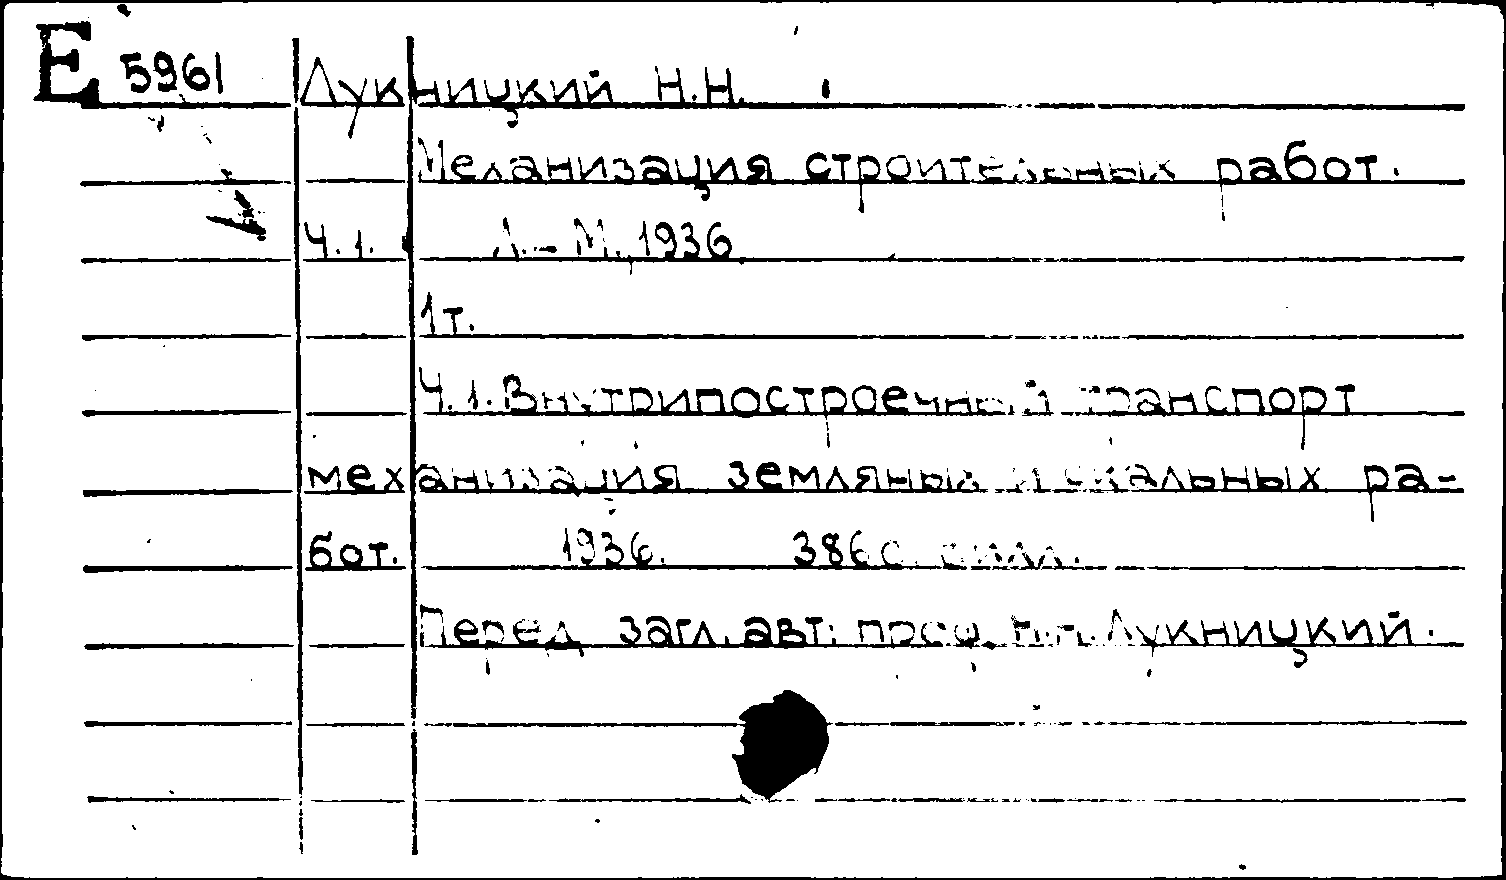 Е 5961 Лукницкий Н.Н.
Механизация строительных работ.
Ч.1. Л.-М., 1936.
1т.
Ч.1. Внутрипостроечный транспорт
механизация земляных и скальных ра-
бот. 1936. 386с. с илл.
Перед загл. авт: проф. Н.Н. Лукницкий.